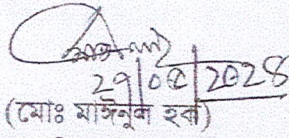 29/05/2024
(মোঃ মাঈনুল হক)